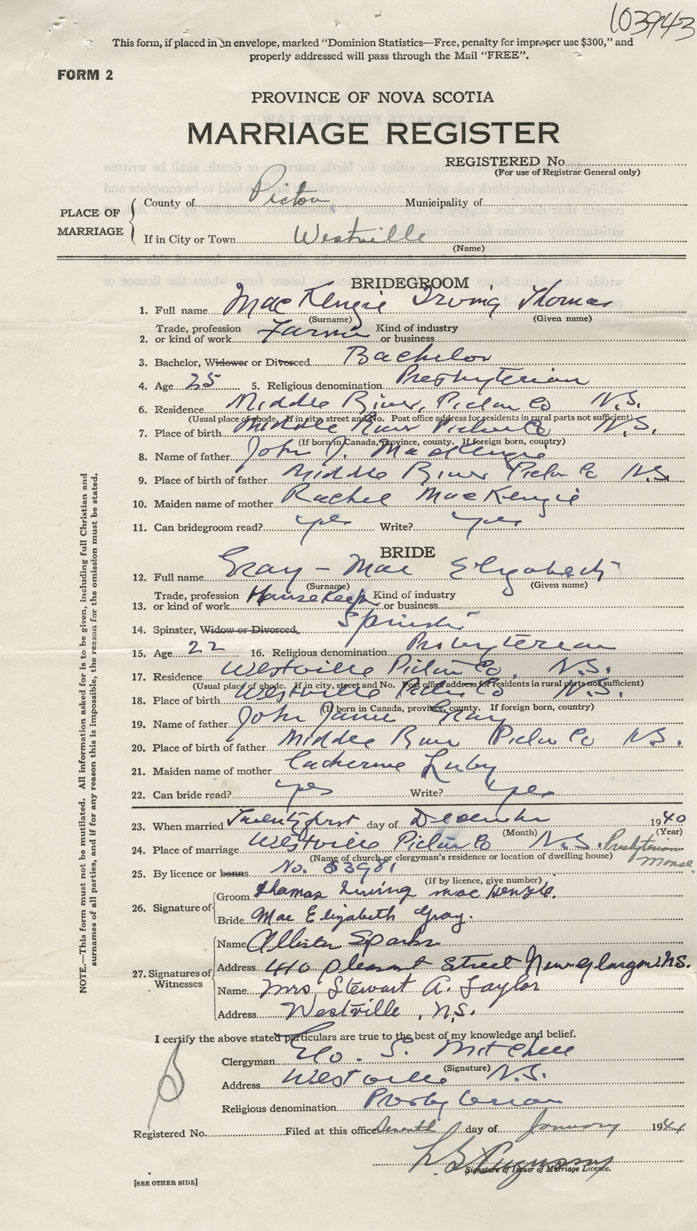 103943
This form, if placed in an envelope, marked "Dominion Statistics—Free, penalty for improper use $300," and
properly addressed will pass through the Mail "FREE".
FORM 2
PROVINCE OF NOVA SCOTIA
MARRIAGE REGISTER
REGISTERED No.
(For use of Registrar General only)
PLACE OF MARRIAGE
County of Pictou Municipality of
If in City or Town Westville
(Name)
BRIDEGROOM
1. Full name MacKenzie Irving Thomas
(Surname) (Given name)
Trade, profession Kind of industry
2. or kind of work Farmer or business
3. Bachelor, Widower or Divorced Bachelor
4. Age 25 5. Religious denomination Presbyterian
6. Residence Middle River, Pictou Co N.S.
(Usual place of abode. If in city, street and No. Post office address for residents in rural parts not sufficient)
7. Place of birth Middle River Pictou Co N.S.
(If born in Canada, province, county. If foreign born, country)
8. Name of father John J. MacKenzie
9. Place of birth of father Middle River Pictou Co N.S.
10. Maiden name of mother Rachel MacKenzie
11. Can bridegroom read? yes Write? yes
BRIDE
12. Full name Gray - Mae Elizabeth
(Surname) (Given name)
Trade, profession Kind of industry
13. or kind of work Housekeep or business
14. Spinster, Widow or Divorced Spinster
15. Age 22 16. Religious denomination Presbyterian
17. Residence Westville Pictou Co, N.S.
(Usual place of abode. If in city, street and No. Post office address for residents in rural parts not sufficient)
18. Place of birth Westville Pictou Co N.S.
(If born in Canada, province, county. If foreign born, country)
19. Name of father John James Gray
20. Place of birth of father Middle River Pictou Co N.S.
21. Maiden name of mother Catherine Luby
22. Can bride read? yes Write? yes
23. When married Twenty first day of December 1940
(Month) (Year)
24. Place of marriage Westville Pictou Co N.S. Presbyterian Manse
(Name of church or clergyman's residence or location of dwelling house)
25. By licence or banns No. 83981
(If by licence, give number)
26. Signature of
Groom Thomas Irving MacKenzie.
Bride Mae Elizabeth Gray.
27. Signatures of Witnesses
Name Allister Sparks
Address 410 Pleasant Street New Glasgow N.S.
Name Mrs Stewart A. Taylor
Address Westville, N.S.
I certify the above stated particulars are true to the best of my knowledge and belief.
Clergyman Geo. S. Mitchell
(Signature)
Address Westville N.S.
Religious denomination Presbyterian
Registered No. Filed at this office day of January 1941
Signature of Issuer of Marriage Licence.
[SEE OTHER SIDE]
NOTE.—This form must not be mutilated. All information asked for is to be given, including full Christian and
surnames of all parties, and if for any reason this is impossible, the reason for the omission must be stated.